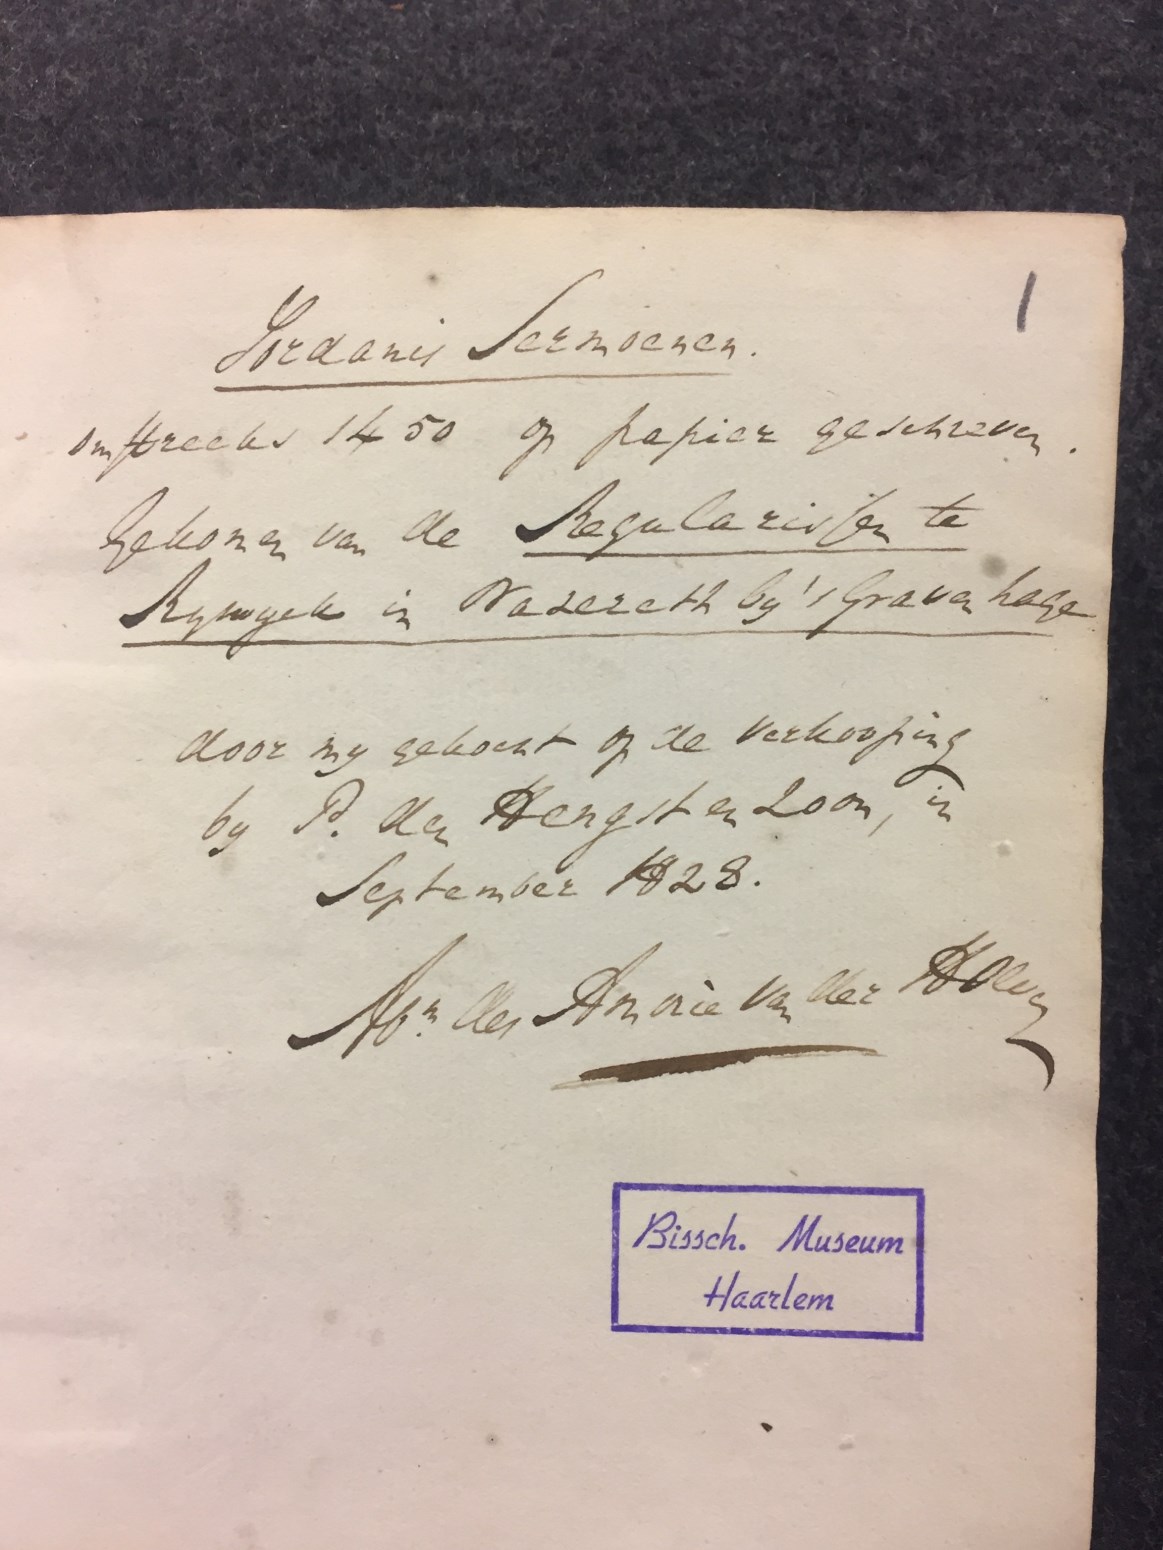 1
Jordanis Sermoenen.
omstreeks 1450 op papier geschreven.
Gekomen van de Regularissen te
Rijswyck in Nazereth by 's Gravenhage
door my gekocht op de verkooping
by P. den Hengst en Zoon, in
September 1828.
Abm. des Amorie van der Hoeven
Bissch. Museum
Haarlem